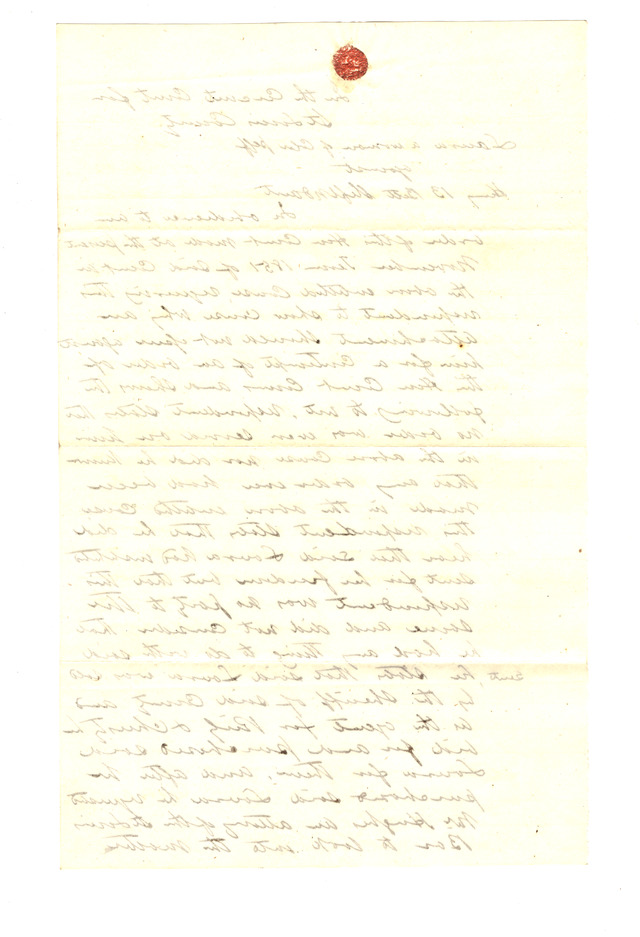 In the Circuit Court for
St Louis County
Laura a woman of Color Plff
against
Henry B Belt Deft
In obedience to an
order of this Hon Court made at the present
November Term 1851 of said Court in
the above entitled Cause requiring this
respondent to show Cause why an
attachment should not issue against
him for a Contempt of an order of
the Hon Court Comes and shows the
following to wit, respondent states that
no order was ever served on him
in the above Cause nor did he know
that any order ever had been
made in the above entitled Cause
this respondent states that he did
hear that said Laura had instituted
suit for her freedom but that this
respondent was no party to the
same and did not consider that
he had any thing to do with said
suit, he states that said Laura was sold
by the Sheriff of said County and
as the agent for he
bid for and purchased said
Laura for them, and after he
purchased said Laura he requested
Mr an attorney of the St Louis
Bar to look into the matter